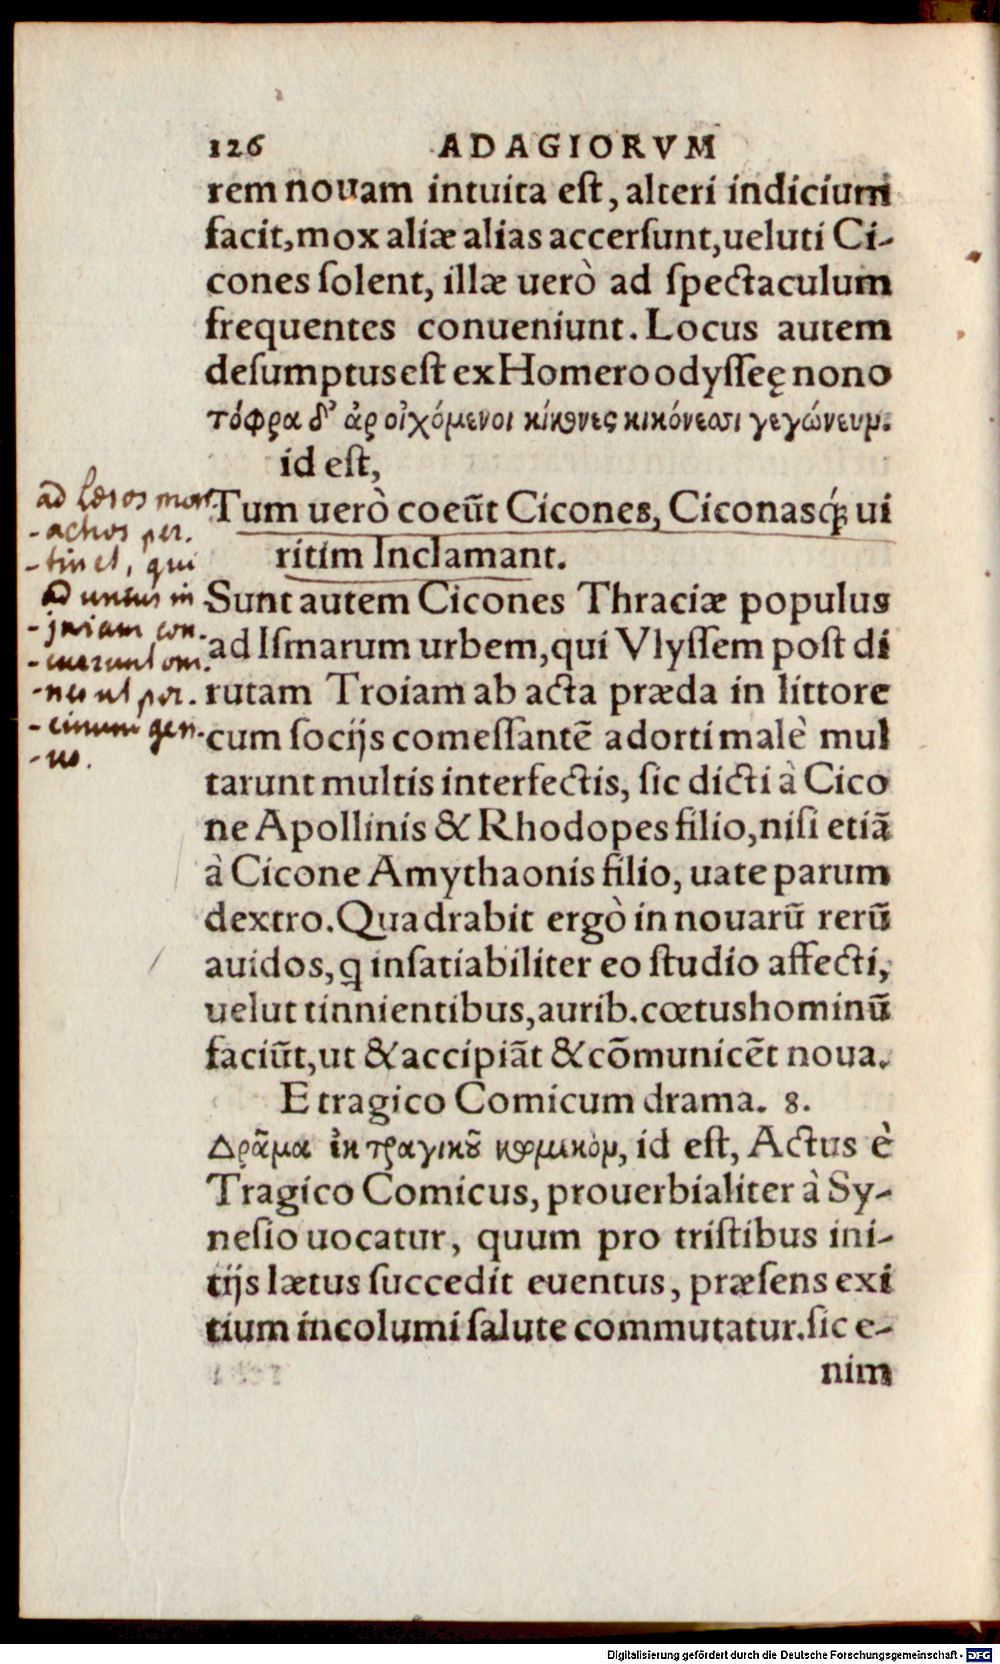 126 ADAGIORVM
rem nouam intuita est, alteri indicium
facit, mox aliæ alias accersunt, ueluti Ci-
cones solent, illæ uerò ad spectaculum
frequentes conueniunt. Locus autem
desumptus est ex Homero odysseę nono
τόφρα δ' ἀρ οἰχόμενοι κίκονες κικόνεσσι γεγώνευν.
id est,
Tum uerò coeũt Cicones, Ciconasq́ue ui
ritim Inclamant.
ad læsos mon
-achos per.
-tinet, qui
ad unius in
-juriam con.
-uerunt om.
-nes ut por.
-cinum gen.
-us.
Sunt autem Cicones Thraciæ populus
ad Ismarum urbem, qui Vlyssem post di
rutam Troiam ab acta præda in littore
cum socijs comessantẽ adorti malè mul
tarunt multis interfectis, sic dicti à Cico
ne Apollinis & Rhodopes filio, nisi etiã
à Cicone Amythaonis filio, uate parum
dextro. Quadrabit ergò in nouarũ rerũ
auidos, q insatiabiliter eo studio affecti,
uelut tinnientibus, aurib. cœtus hominũ
faciũt, ut & accipiãt & cõmunicẽt noua.
E tragico Comicum drama. 8.
Δρᾶμα ἐκ τραγικοῦ κωμικὸν, id est, Actus è
Tragico Comicus, prouerbialiter à Sy-
nesio uocatur, quum pro tristibus ini-
tijs lætus succedit euentus, præsens exi
tium incolumi salute commutatur. sic e-
nim
Digitalisierung gefördert durch die Deutsche Forschungsgemeinschaft - DFG